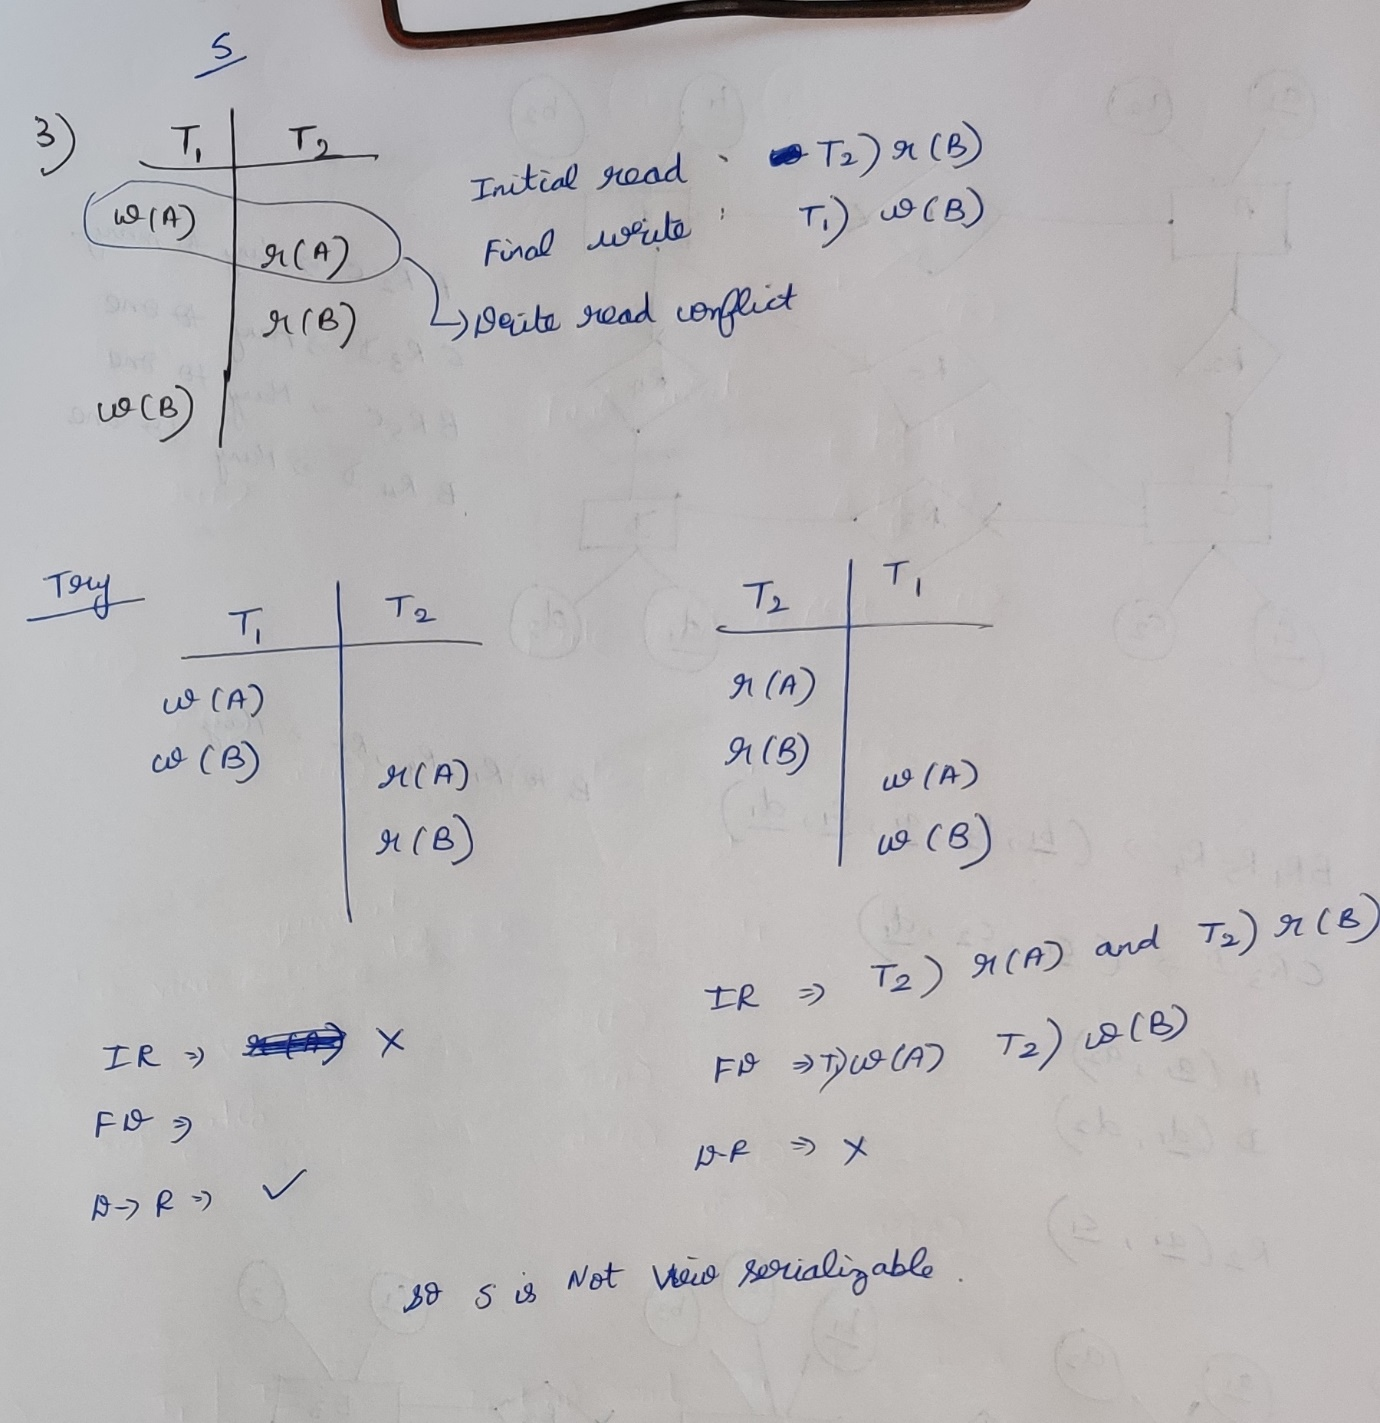 S
3)
T1 T2
w(A)
r(A)
r(B)
w(B)
Initial read : T2) r(B)
Final write : T1) w(B)
↳ Write read conflict
Try
T1 T2
w(A)
w(B)
r(A)
r(B)
T2 T1
r(A)
r(B)
w(A)
w(B)
IR ⇒ X
FW ⇒
W→R ⇒ ✓
IR ⇒ T2) r(A) and T2) r(B)
FW ⇒ T1) w(A) T2) w(B)
W-R ⇒ X
so S is Not View serializable.